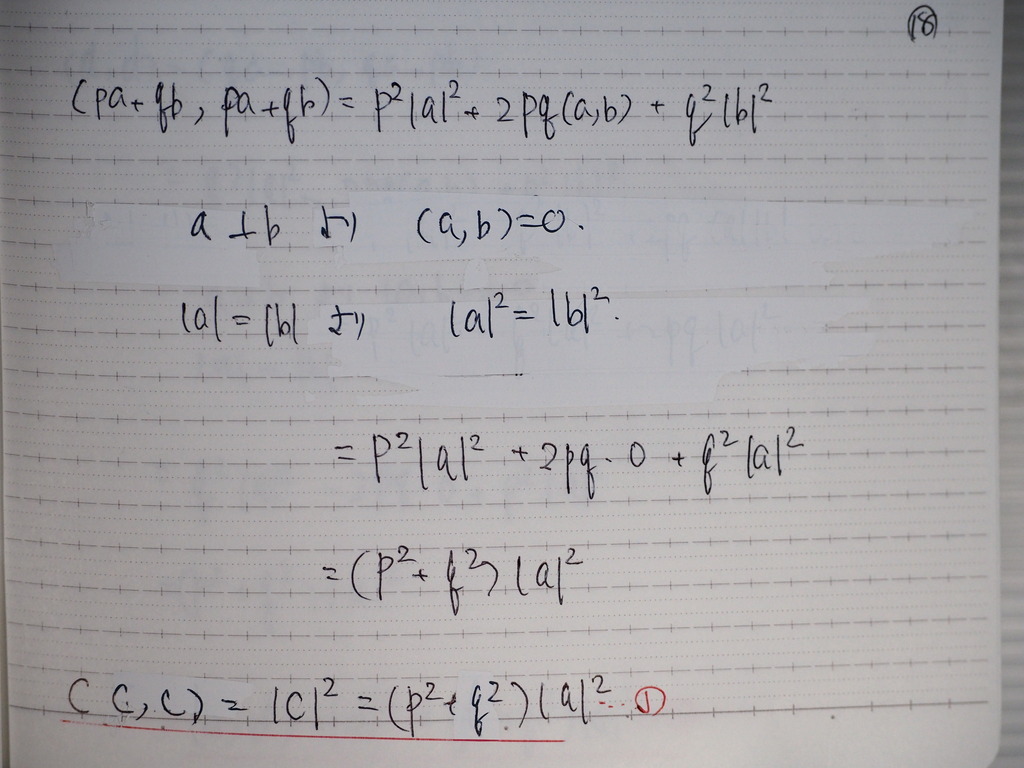 ⑱
(pa+qb, pa+qb) = p²|a|² + 2pq(a,b) + q²|b|²
a⊥b より (a,b)=0.
|a|=|b| より |a|²=|b|².
= p²|a|² + 2pq・0 + q²|a|²
= (p²+q²)|a|²
(c,c) = |c|² = (p²+q²)|a|² … ①